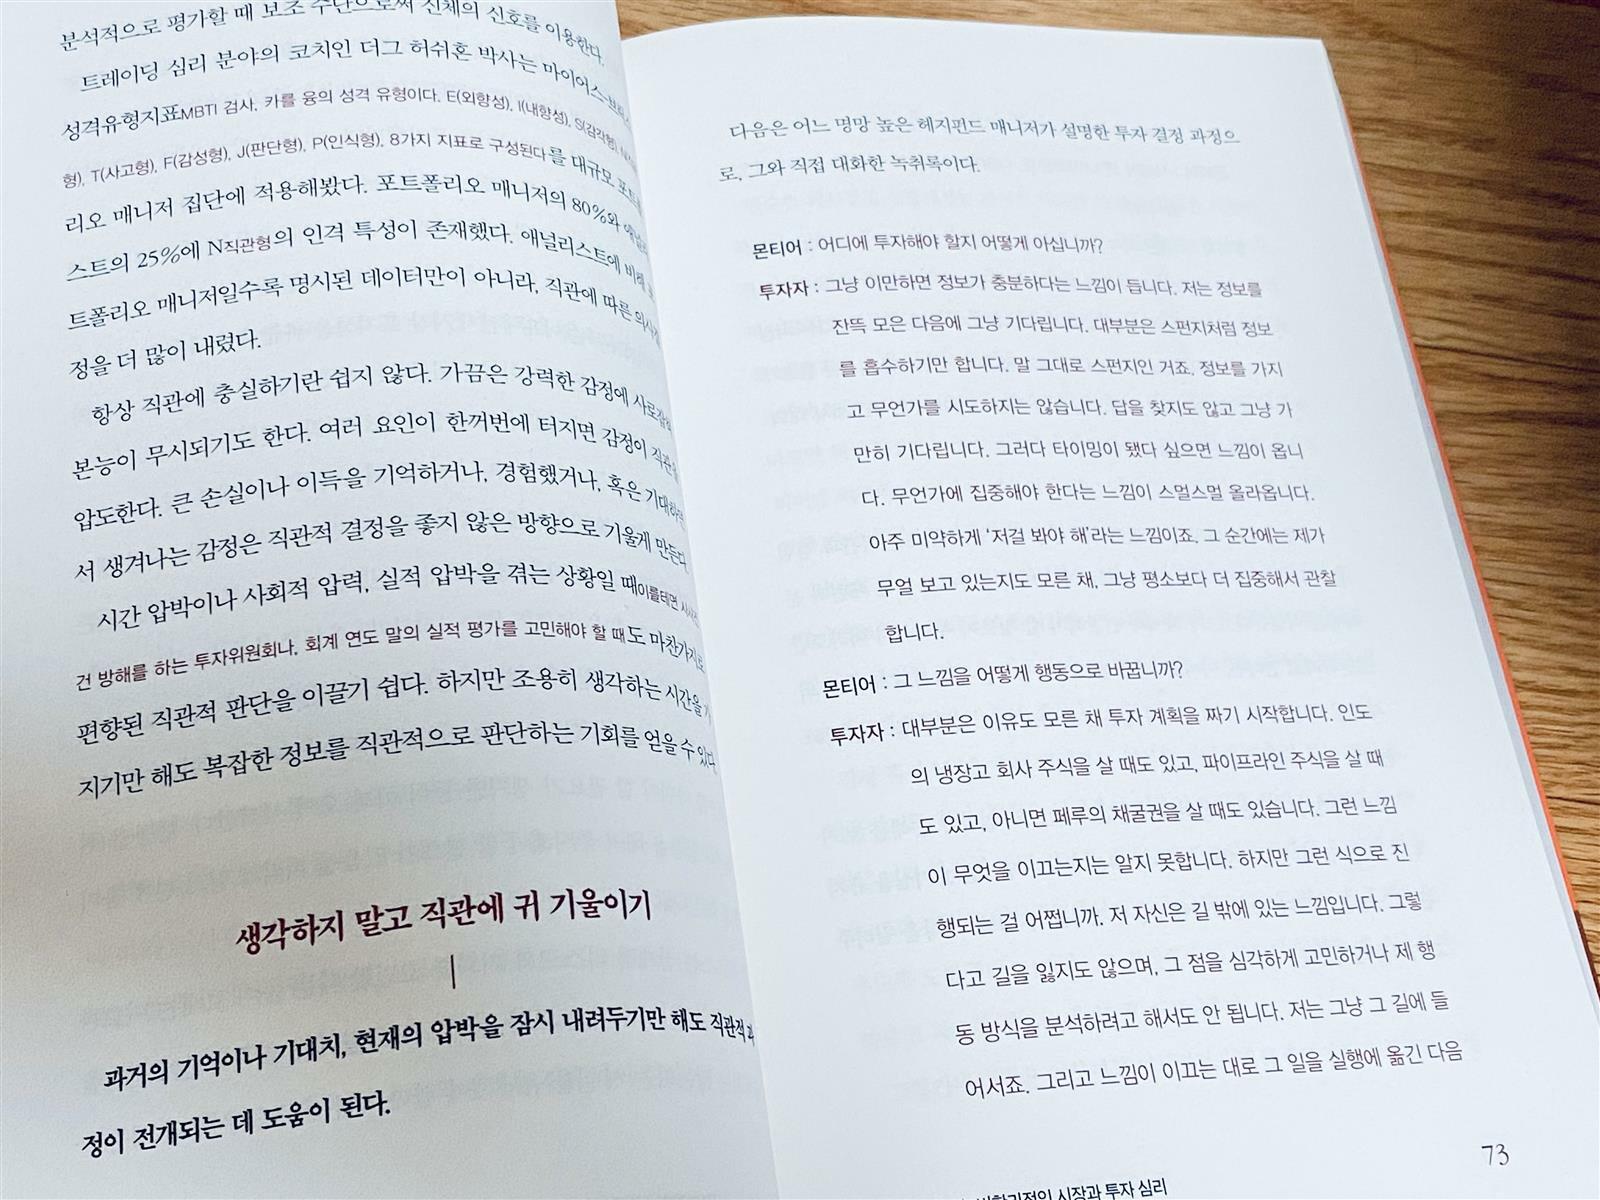 분석적으로 평가할 때 보조 수단으로써 신체의 신호를 이용한다.
트레이딩 심리 분야의 코치인 더그 허쉬혼 박사는 마이어스-브릭스
성격유형지표MBTI 검사, 카를 융의 성격 유형이다. E(외향성), I(내향성), S(감각형),
형), T(사고형), F(감성형), J(판단형), P(인식형), 8가지 지표로 구성된다를 대규모
리오 매니저 집단에 적용해봤다. 포트폴리오 매니저의 80%와
스트의 25%에 N직관형의 인격 특성이 존재했다. 애널리스트에 비해
트폴리오 매니저일수록 명시된 데이터만이 아니라, 직관에 따른
정을 더 많이 내렸다.
항상 직관에 충실하기란 쉽지 않다. 가끔은 강력한 감정에
본능이 무시되기도 한다. 여러 요인이 한꺼번에 터지면 감정이 직관을
압도한다. 큰 손실이나 이득을 기억하거나, 경험했거나, 혹은
서 생겨나는 감정은 직관적 결정을 좋지 않은 방향으로 기울게 만든다.
시간 압박이나 사회적 압력, 실적 압박을 겪는 상황일 때이를테면
건 방해를 하는 투자위원회나, 회계 연도 말의 실적 평가를 고민해야 할 때도 마찬가지로
편향된 직관적 판단을 이끌기 쉽다. 하지만 조용히 생각하는 시간을
지기만 해도 복잡한 정보를 직관적으로 판단하는 기회를 얻을 수 있다.
생각하지 말고 직관에 귀 기울이기
과거의 기억이나 기대치, 현재의 압박을 잠시 내려두기만 해도 직관적
정이 전개되는 데 도움이 된다.
다음은 어느 명망 높은 헤지펀드 매니저가 설명한 투자 결정 과정으
로, 그와 직접 대화한 녹취록이다.
몬티어 : 어디에 투자해야 할지 어떻게 아십니까?
투자자 : 그냥 이만하면 정보가 충분하다는 느낌이 듭니다. 저는 정보를
잔뜩 모은 다음에 그냥 기다립니다. 대부분은 스펀지처럼 정보
를 흡수하기만 합니다. 말 그대로 스펀지인 거죠. 정보를 가지
고 무언가를 시도하지는 않습니다. 답을 찾지도 않고 그냥 가
만히 기다립니다. 그러다 타이밍이 됐다 싶으면 느낌이 옵니
다. 무언가에 집중해야 한다는 느낌이 스멀스멀 올라옵니다.
아주 미약하게 ‘저걸 봐야 해’라는 느낌이죠. 그 순간에는 제가
무얼 보고 있는지도 모른 채, 그냥 평소보다 더 집중해서 관찰
합니다.
몬티어 : 그 느낌을 어떻게 행동으로 바꿉니까?
투자자 : 대부분은 이유도 모른 채 투자 계획을 짜기 시작합니다. 인도
의 냉장고 회사 주식을 살 때도 있고, 파이프라인 주식을 살 때
도 있고, 아니면 페루의 채굴권을 살 때도 있습니다. 그런 느낌
이 무엇을 이끄는지는 알지 못합니다. 하지만 그런 식으로 진
행되는 걸 어쩝니까. 저 자신은 길 밖에 있는 느낌입니다. 그렇
다고 길을 잃지도 않으며, 그 점을 심각하게 고민하거나 제 행
동 방식을 분석하려고 해서도 안 됩니다. 저는 그냥 그 길에 들
어서죠. 그리고 느낌이 이끄는 대로 그 일을 실행에 옮긴 다음
73
시장과 투자 심리